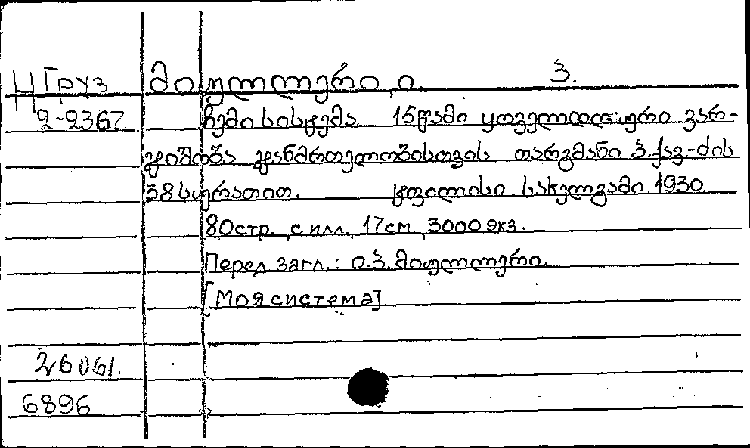 Н Груз მიულლერი, ი. პ.
2-2367 ჩემი სისტემა 15 წამი ყოველდღიური ვარ-
ჯიშობა ჯანმრთელობისთვის თარგმანი პ. ქავ-ძის
38 სურათით. ტფილისი სახელგამი 1930
80 стр., с илл. 17 см 3000 экз.
Перед загл.: ი. პ. მიულლერი.
[Моя система]
26061.
6896